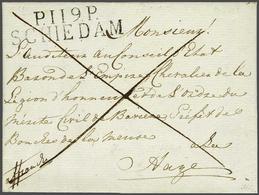 P.119.P.
SCHIEDAM
Monsieur!
L'auditeur au Conseil d'Etat
Baron de l'Empire Chevalier de la
Legion d'honneur et de l'ordre du
merite Civil de Baviere Prefet des
Bouches de la meuse
a La
Haye